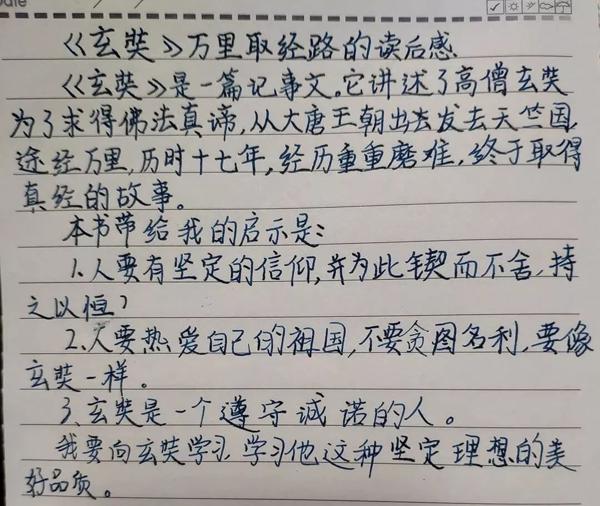 Date / /
《玄奘》万里取经路的读后感
《玄奘》是一篇记事文,它讲述了高僧玄奘
为了求得佛法真谛,从大唐王朝出去发去天竺国,
途经万里,历时十七年,经历重重磨难,终于取得
真经的故事。
本书带给我的启示是:
1.人要有坚定的信仰,并为此锲而不舍,持
之以恒?
2.人要热爱自己的祖国,不要贪图名利,要像
玄奘一样。
3、玄奘是一个遵守诚诺的人。
我要向玄奘学习,学习他这种坚定理想的美
好品质。